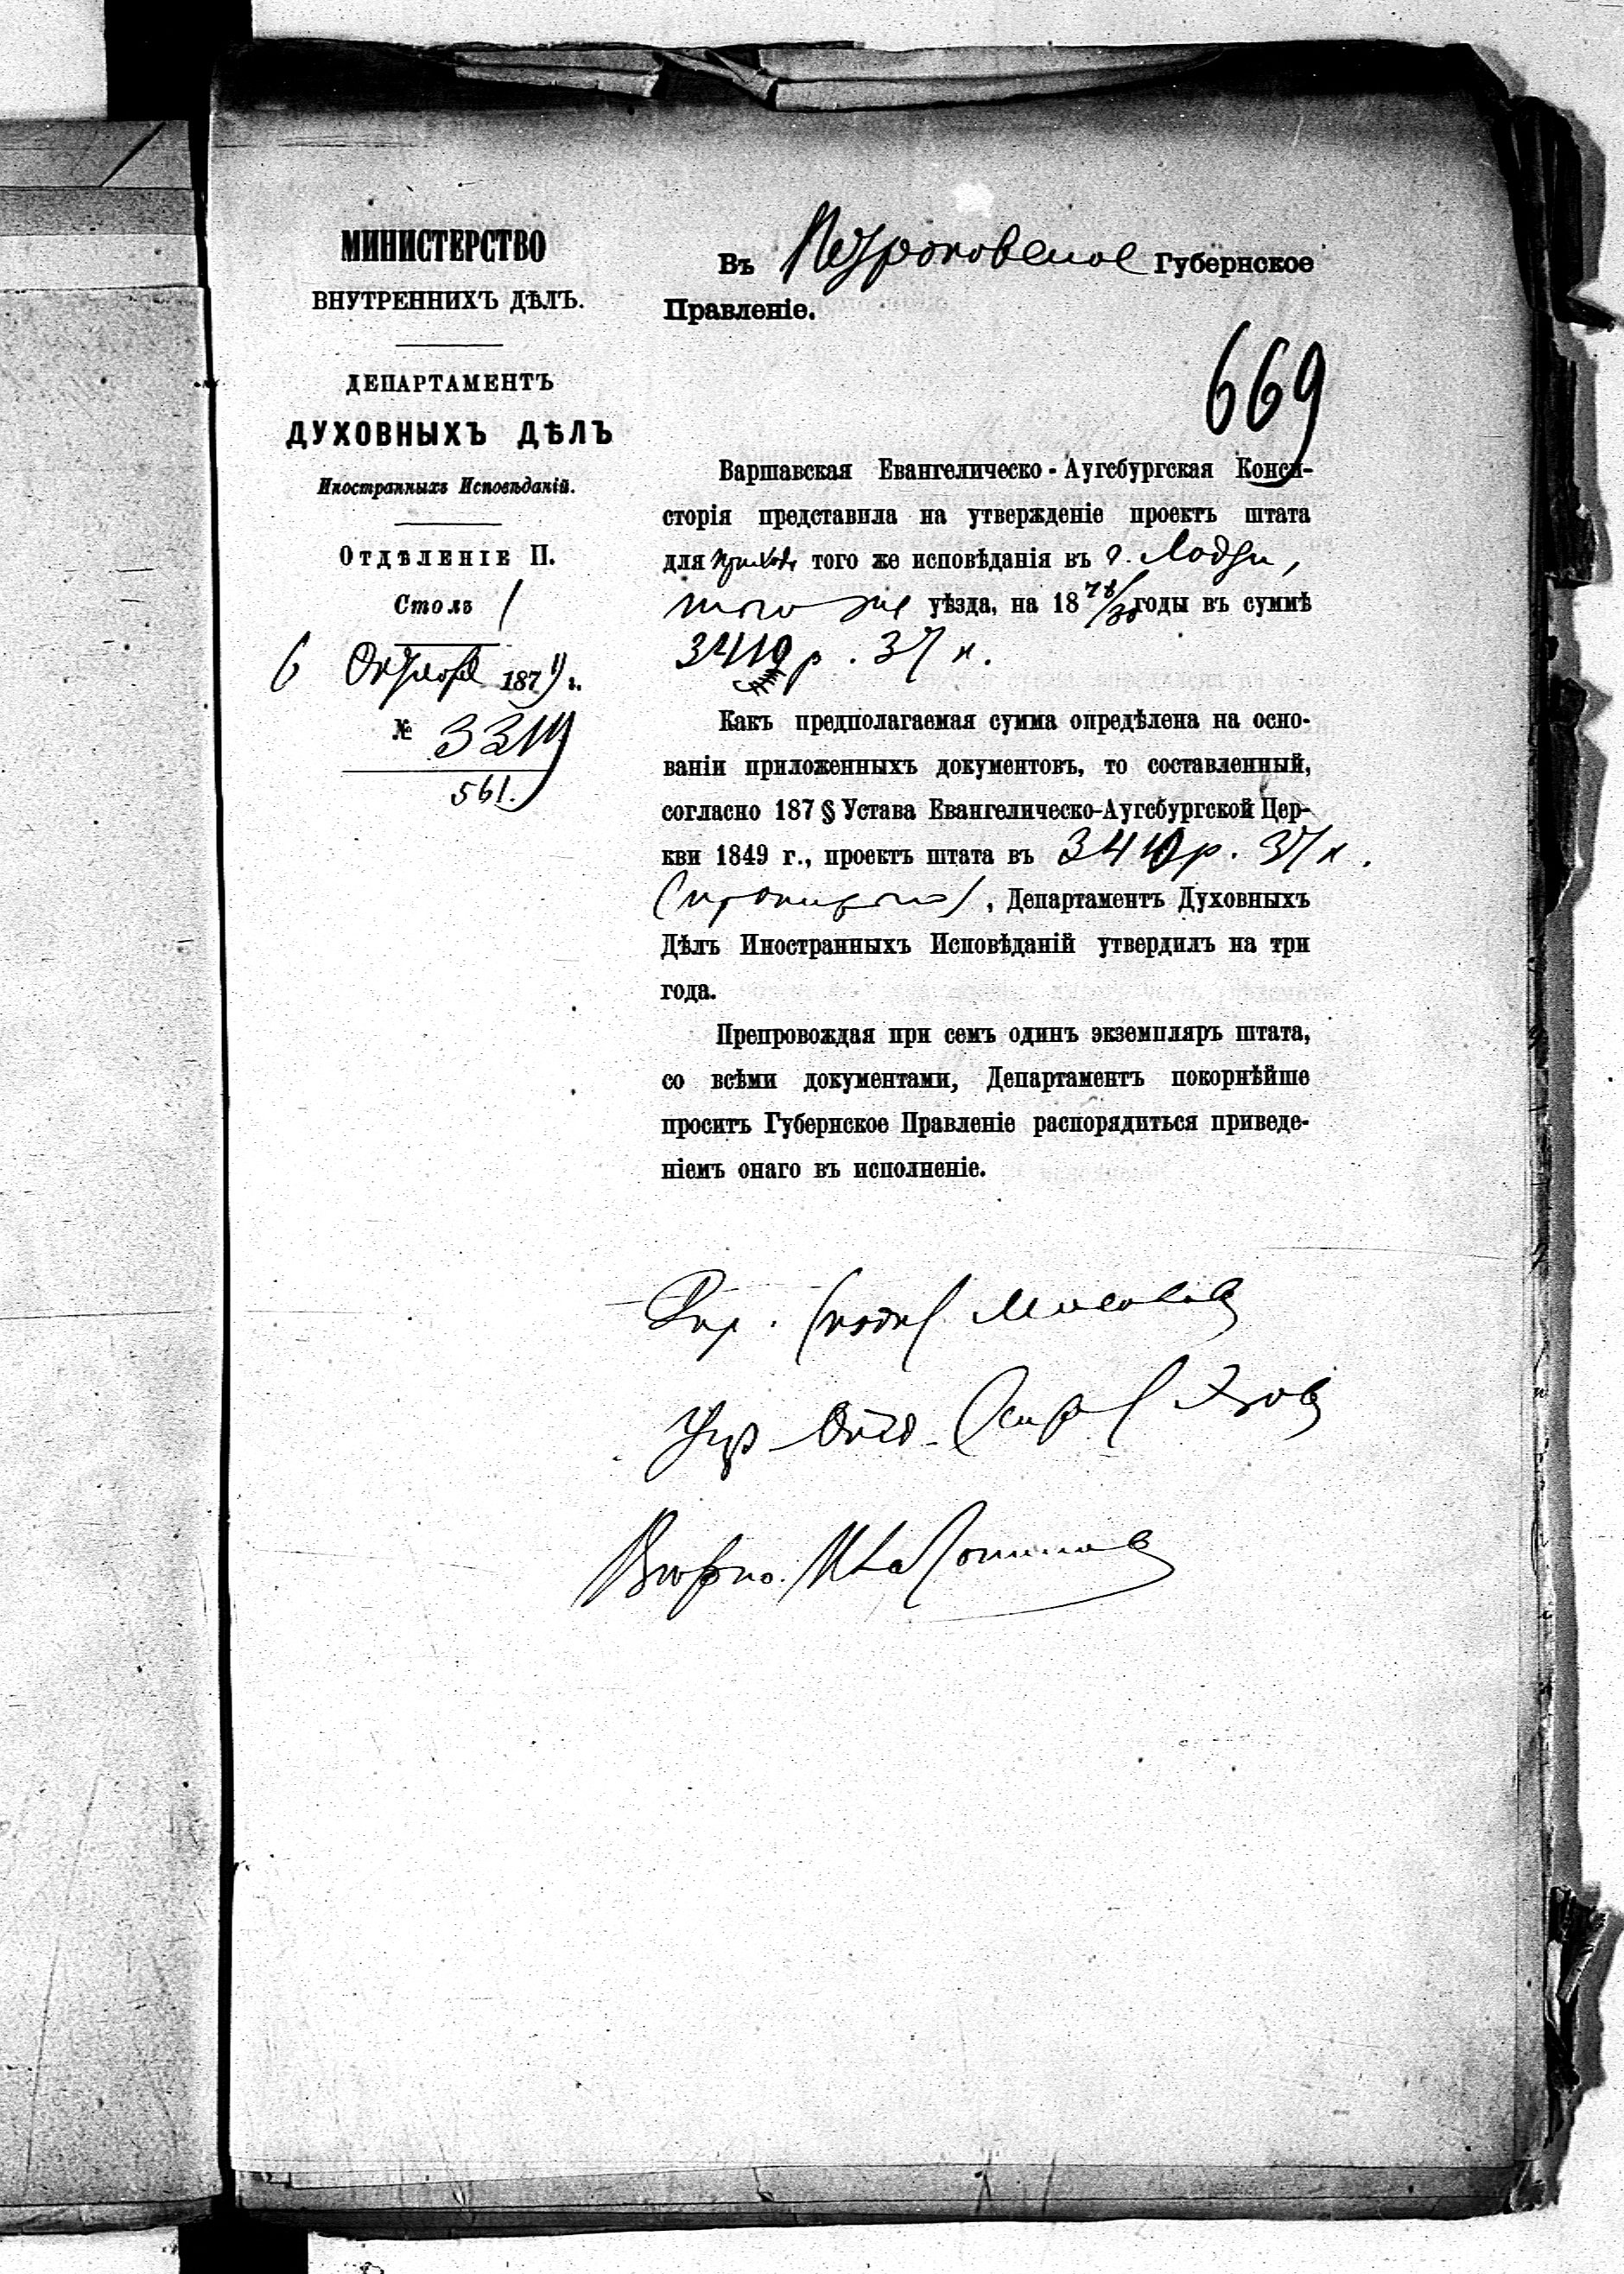 МИНИСТЕРСТВО
ВНУТРЕННИХЪ ДѢЛЪ.
ДЕПАРТАМЕНТЪ
ДУХОВНЫХЪ ДѢЛЪ
Иностранныхъ Исповѣданій.
ОТДѢЛЕНІЕ II.
Столъ 1
6 Октября 1879 г.
№ 3319
561.
Въ Петроковское Губернское
Правленіе.
669
Варшавская Евангелическо-Аугсбургская Конси-
сторія представила на утвержденіе проектъ штата
для прихода того же исповѣданія въ г. Лодзи,
того же уѣзда, на 1878/80 годы въ суммѣ
3419 р. 37 к.
Какъ предполагаемая сумма опредѣлена на осно-
ваніи приложенныхъ документовъ, то составленный,
согласно 187 § Устава Евангелическо-Аугсбургской Цер-
кви 1849 г., проектъ штата въ р. 37 к.
, Департаментъ Духовныхъ
Дѣлъ Иностранныхъ Исповѣданій утвердилъ на три
года.
Препровождая при семъ одинъ экземпляръ штата,
со всѣми документами, Департаментъ покорнѣйше
проситъ Губернское Правленіе распорядиться приведе-
ніемъ онаго въ исполненіе.
Дир. (подп) Мосолов
Упр Отд.
Вѣрно: